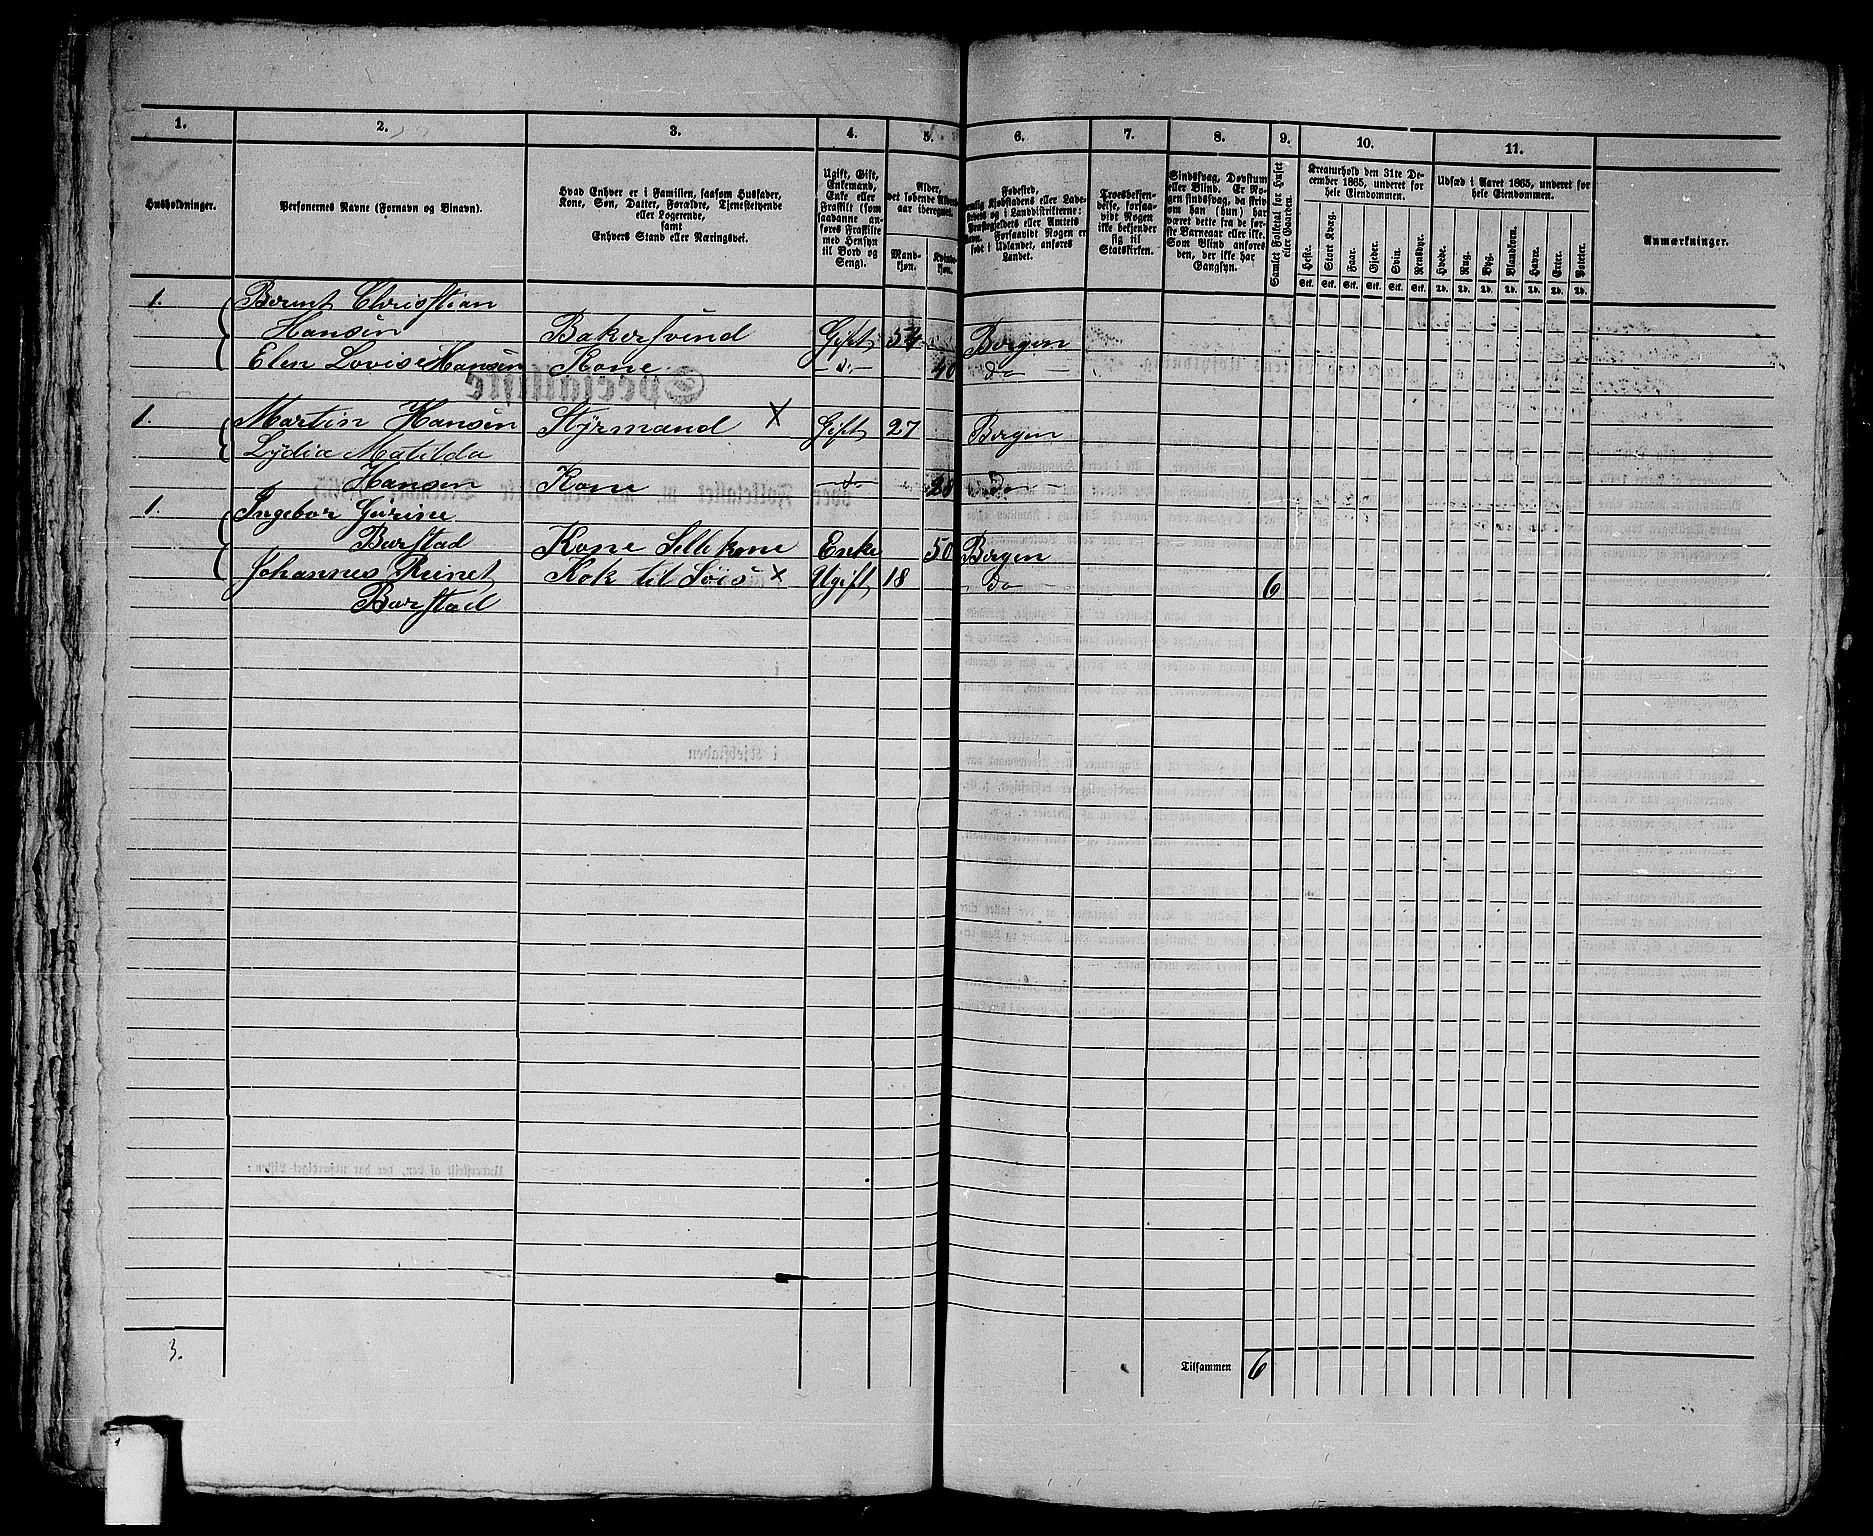 1. 2. 3. 4. 5. 6. 7. 8. 9. 10. 11.
Husholdninger.
Personernes Navne (Fornavn og Binavn).
Hvad Enhver er i Familien, saasom Husfader,
Kone, Søn, Datter, Forældre, Tjenestetyende
eller Logerende,
samt
Enhvers Stand eller Næringsvei.
Ugift, Gift,
Enkemand,
Enke eller
Fraskilt (som
saadanne an-
føres Fraskilte
med Hensyn
til Bord og
Seng).
Alder,
det løbende Alders-
aar iberegnet.
Mand-
kjøn.
Kvinde-
kjøn.
Fødested,
nemlig Kjøbstadens eller Lade-
stedets og i Landdistrikterne:
Præstegjeldets eller Amtets
Navn. Forsaavidt Nogen er
født i Udlandet, anføres
Landet.
Troesbekjen-
delse, forsaa-
vidt Nogen
ikke bekjender
sig til
Statskirken.
Sindssvag, Døvstum
eller Blind. Er No-
gen sindssvag, da skriv
om han (hun) har
været dette fra de før-
ste Barneaar eller ikke.
Som Blind anføres
den, der ikke har
Gangsyn.
Samlet Folketal for Huset
eller Gaarden.
Kreaturhold den 31te De-
cember 1865, underet for
hele Eiendommen.
Heste. Stort Kvæg. Faar. Gjeder. Svin. Rensdyr.
Stk. Stk. Stk. Stk. Stk. Stk.
Udsæd i Aaret 1865, underet for
hele Eiendommen.
Hvede. Rug. Byg. Blandkorn. Havre. Erter. Poteter.
Td. Td. Td. Td. Td. Td. Td.
Anmærkninger.
1. Bernt Christian
Hansen Bakersvend Gift 54 Bergen
Elen Lovise Hansen Kone - do - 40 do -
1. Martin Hansen Styrmand X Gift 27 Bergen
Lydia Matilda
Hansen Kone - do 28 Do -
1. Ingebor Gurine
Barstad Kone Sellekone Enke 50 Bergen
Johannes Reinet Kok til Søis X Ugift 18 do - 6
Barstad
3. Tilsammen 6